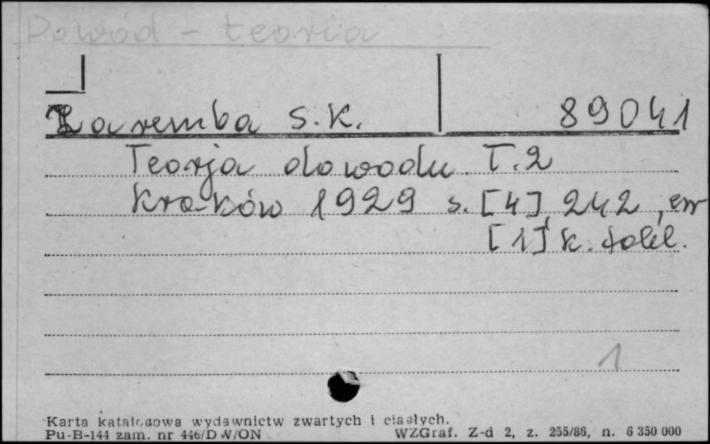 Dowód - teoria
Zaremba S.K. 89041
Teorja dowodu T.2
Kraków 1929 s. [4], 242, err
[1] k. tabl.
1
Karta katalogowa wydawnictw zwartych i ciągłych.
Pu-B-144 zam. nr 446/D W/ON WZGraf. Z-d 2, z. 255/86, n. 6 350 000